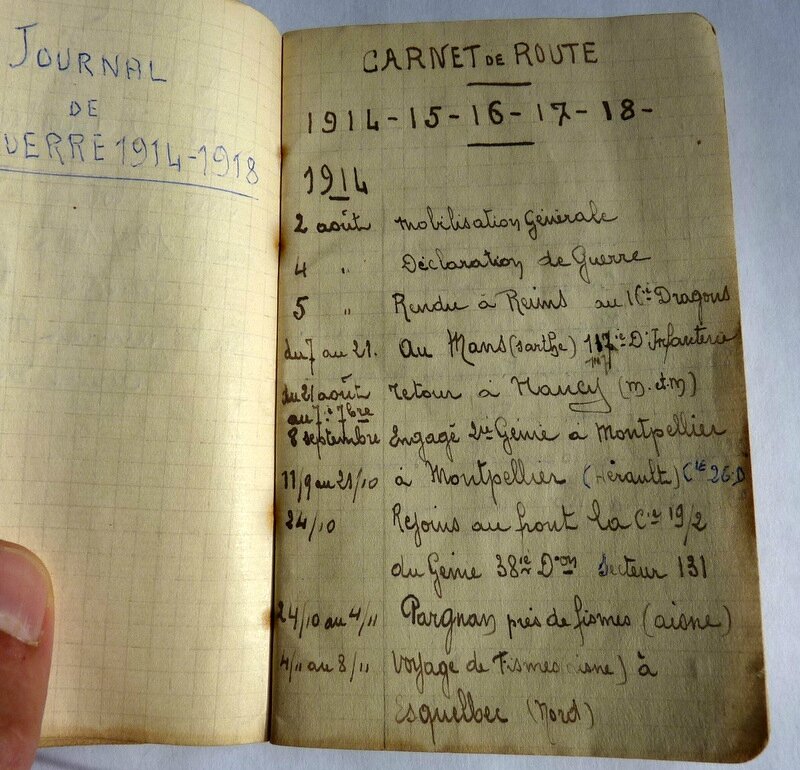 JOURNAL
DE
UERRE 1914-1918
CARNET DE ROUTE
1914-15-16-17-18-
1914
2 août Mobilisation Générale
4 " Déclaration de Guerre
5 " Rendu à Reims au 16ie Dragons
du 7 au 21. Au Mans (sarthe) 117ie D'Infanterie
du 21 août retour à Nancy (M. et M)
au 7: 7bre
8 septembre Engagé 2ie Génie à Montpellier
11/9 au 21/10 à Montpellier (Hérault) Cie 26.D
24/10 Rejoins au front la Cie 19/2
du Génie 38ie Don Secteur 131
24/10 au 4/11 Pargnan près de fismes (aisne)
4/11 au 8/11 Voyage de Fismes (aisne) à
Esquelbec (Nord)